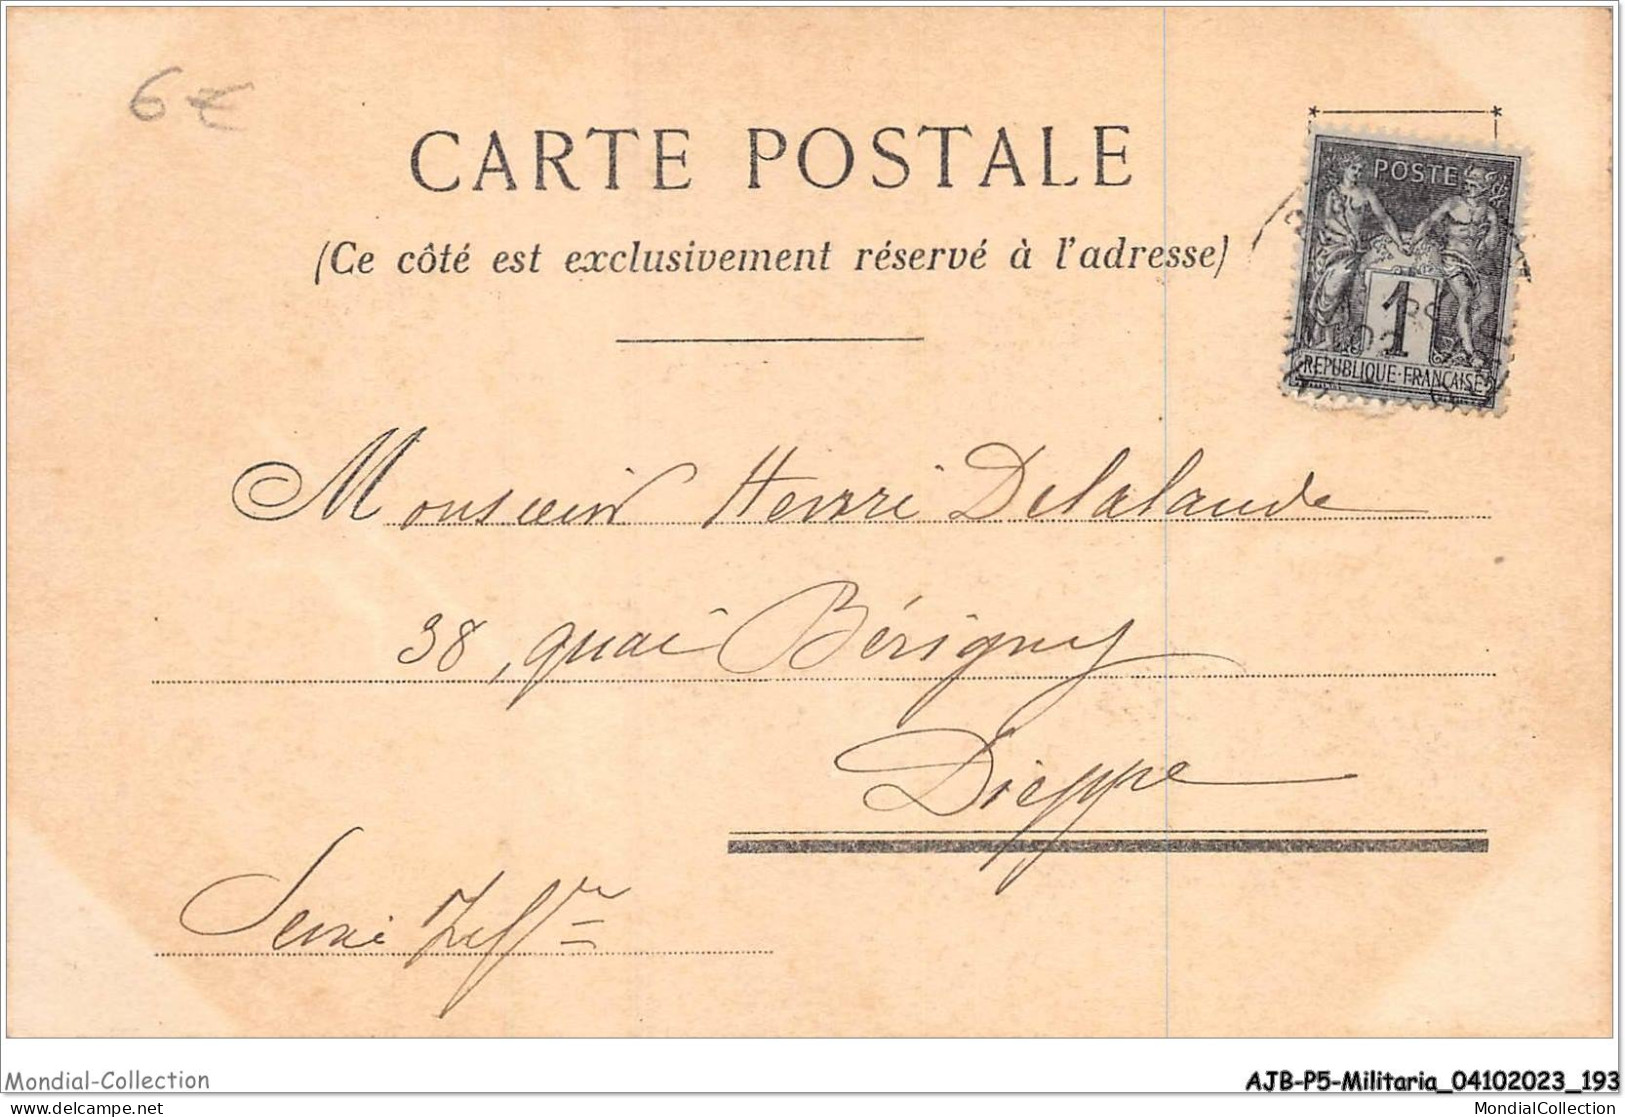 6€
CARTE POSTALE
(Ce côté est exclusivement réservé à l'adresse)
POSTE
1
REPUBLIQUE·FRANÇAISE
Monsieur Henri Delalande
38, quai Bérigny
Dieppe
Seine Infre
Mondial-Collection
AJB-P5-Militaria_04102023_193
delcampe.net
MondialCollection